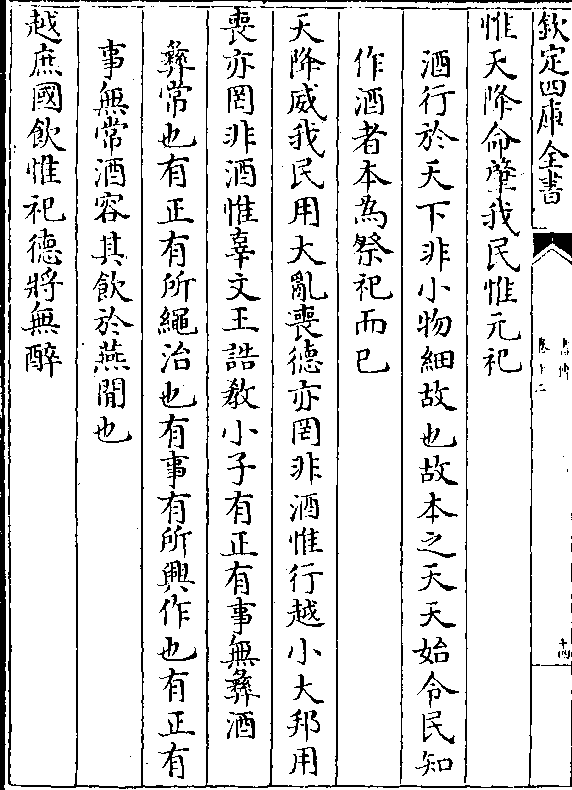 欽定四庫全書
書傳
卷十二
十四
惟天降命肇我民惟元祀
酒行於天下非小物細故也故本之天天始令民知
作酒者本為祭祀而已
天降威我民用大亂喪德亦罔非酒惟行越小大邦用
喪亦罔非酒惟辜文王誥教小子有正有事無彝酒
彝常也有正有所繩治也有事有所興作也有正有
事無常酒容其飲於燕閒也
越庶國飲惟祀德將無醉